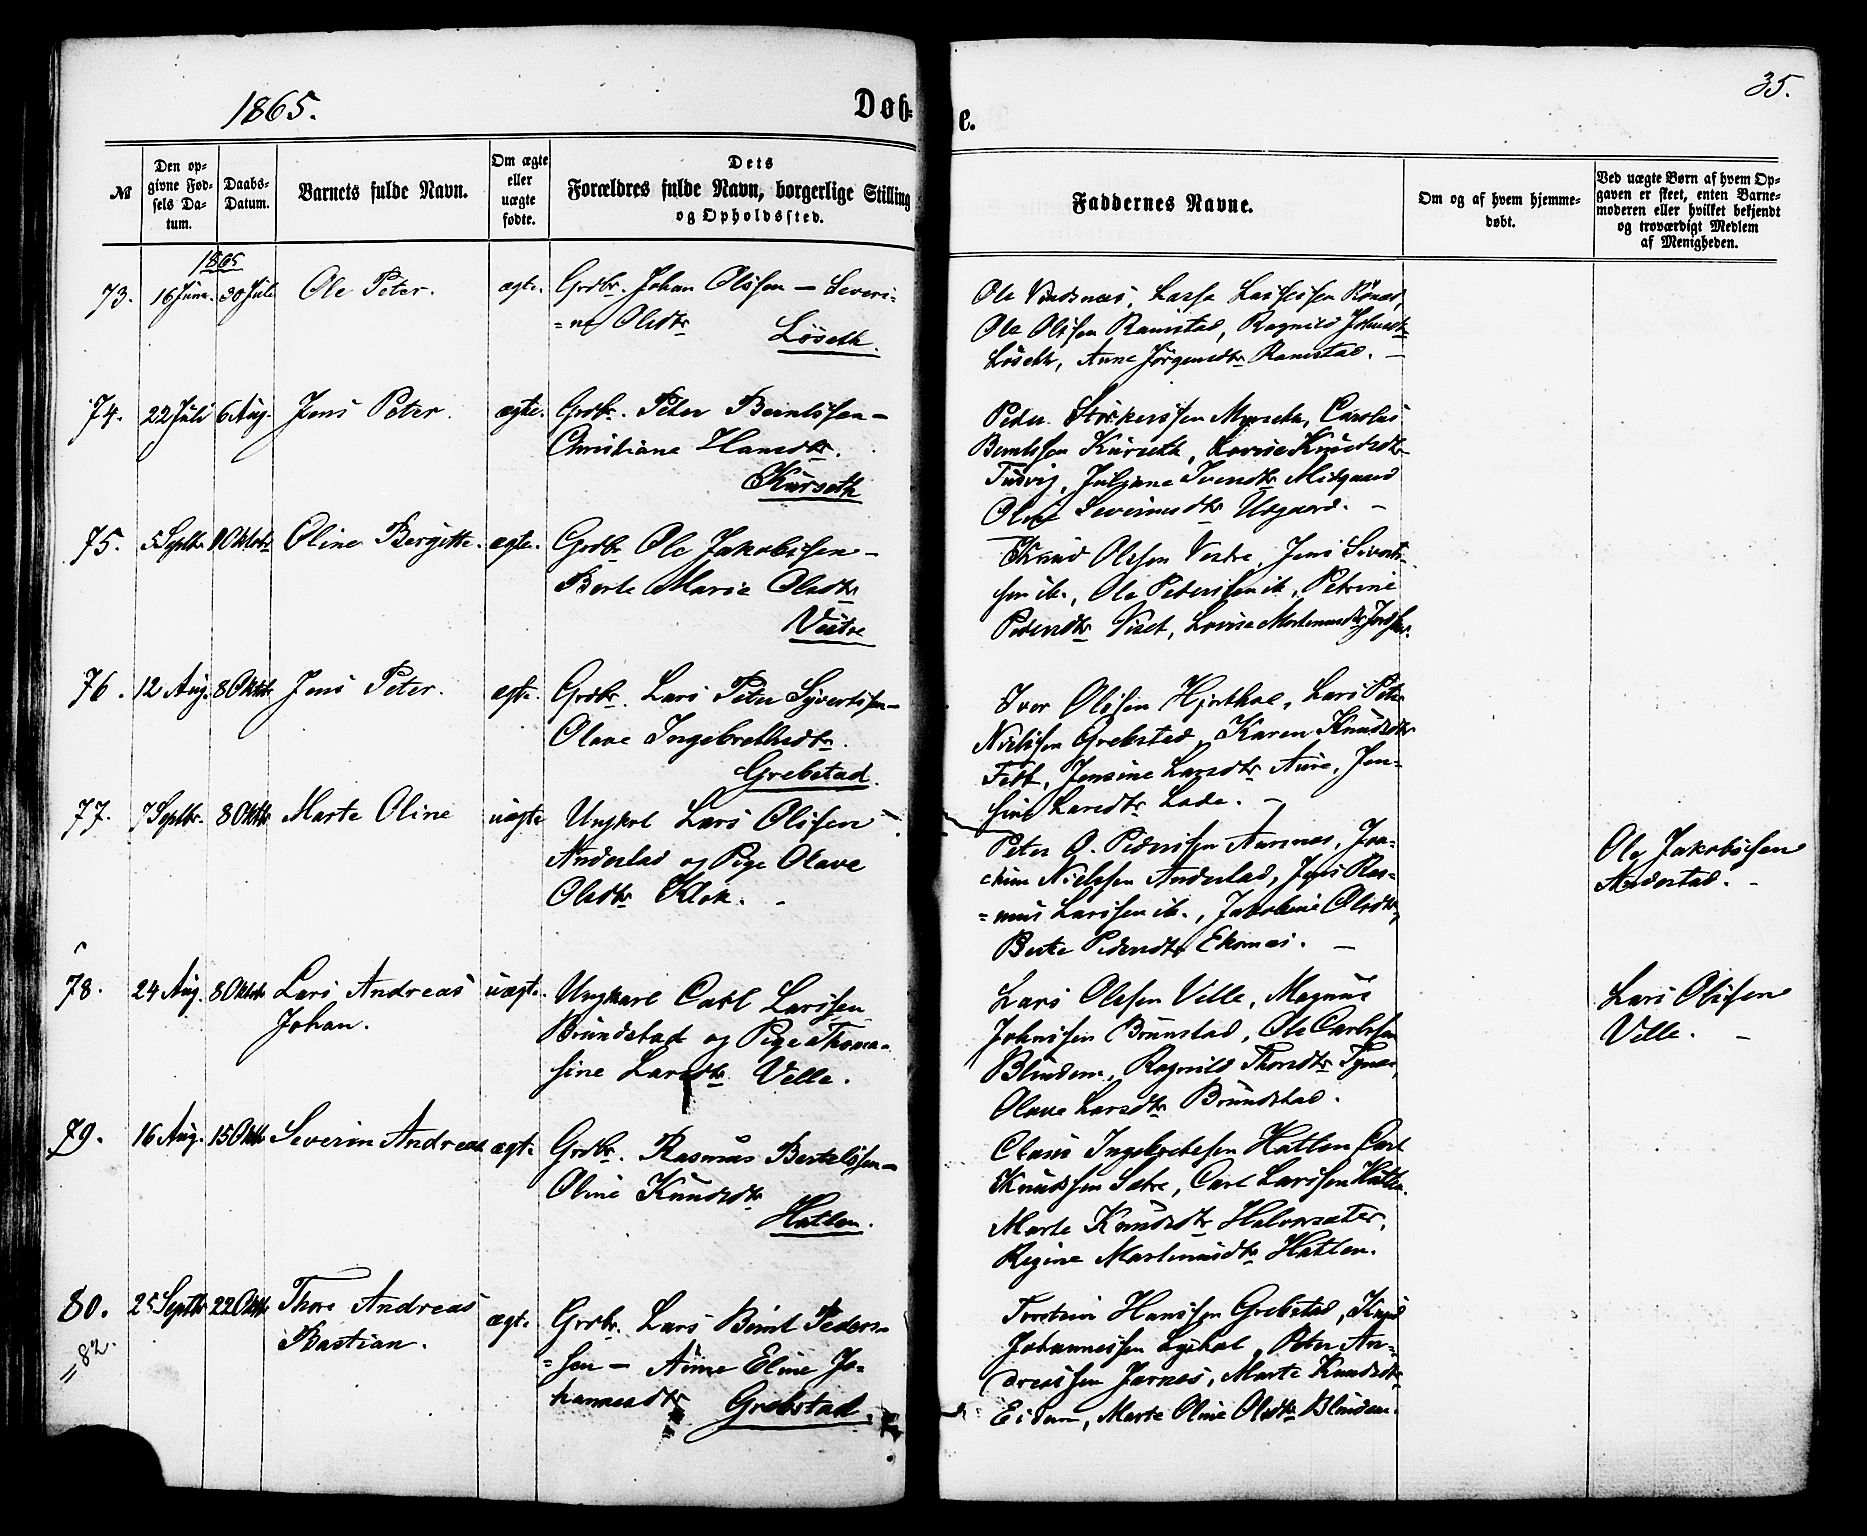 1865.
Døb-
e.
35.
№
Den op-
givne Fød-
sels Da-
tum.
Daabs-
Datum.
Barnets fulde Navn.
Om ægte
eller
uægte
fødte.
Dets
Forældres fulde Navn, borgerlige Stilling
og Opholdssted.
Faddernes Navne.
Om og af hvem hjemme-
døbt.
Ved uægte Børn af hvem Op-
gaven er skeet, enten Barne-
moderen eller hvilket bekjendt
og troværdigt Medlem
af Menigheden.
1865
73. 16 Juni. 30 Juli Ole Peter. ægte. Grdbr. Johan Olssen — Severi-
=ne Olsdtr
Løseth.
Ole Lasse Larssen
Ole Olssen Ramstad, Ragnild
Løseth, Anne Jørgensdtr Ramstad. —
74. 22 Juli 6 Aug. Jens Peter. ægte. Grdbr. Peter Berntssen —
Christiane Hansdtr.
Kurseth
Peder Myrseth, Carolus
Berntssen Kurseth, Lovise Knudsdtr
Tudvig, Juliane Midgaard
Oline Severinsdtr Uregaard. —
75. 5 Septbr. 1 Oktobr Oline Bergitte. ægte. Grdbr Ole Jakobssen —
Berte Marie Olsdtr
Vestre
Knud Olssen Vestre, Jens Sivert-
sen ib., Ole Pederssen ib., Petrine
Pedersdtr Viset, Lovise Martinusdtr
76. 12 Aug. 8 Oktbr Jens Peter. ægte. Grdbr. Lars Peter Syvertssen —
Olave Ingebrethsdtr.
Grebstad.
Iver Olssen Hjorthol, Lars Peter
Nielssen Grebstad, Karen Knudsdtr
Fedt, Jensine Larsdtr Aure, Jen-
sine Larsdtr Lade. —
77. 7 Septbr. 8 Oktbr Marte Oline uægte Ungkarl Lars Olssen
Andestad og Pige Olave
Olsdtr Klok. —
Peter O. Pederssen Aursnes, Joa-
chim Nielssen Andestad, Jens Ras-
=mus Larssen ib., Jakobine Olsdtr,
Berte Pedersdtr Ekornes. —
Ole Jakobssen
Andestad. —
78. 24 Aug. 8 Oktbr Lars Andreas uægte. Ungkarl Carl Larssen
Johan.
Brundstad og Pige Thoma-
sine Larsdtr Velle.
Lars Olssen Velle, Magnus
Johnssen Brunstad, Ole Carlssen
Blindem, Ragnild Thorsdtr Tynes,
Olave Larsdtr Brundstad.
Lars Olssen
Velle. —
79. 16 Aug. 15 Oktbr Severin Andreas ægte Grdbr. Rasmus Bertelssen —
Oline Knudsdtr
Hatlen.
Claus Ingebretssen Hatlen, Carl
Knudssen Sætre, Carl Larssen Hatlen.
Marte Knudsdtr Halvorsæter,
Regine Martinusdtr Hatlen.
80. 25 Septbr 22 Oktbr Thore Andreas ægte. Grdbr. Lars Bernt Peders-
Bastian.
=sen — Anne Eline Jo-
hannesdtr Grebstad.
=82.
Torstein Hanssen Grebstad, Knud
Johannessen Lyshol, Peter An-
dreassen Jarnes, Marte Knudsdtr
Eidem, Marte Oline Olsdtr Blindem.